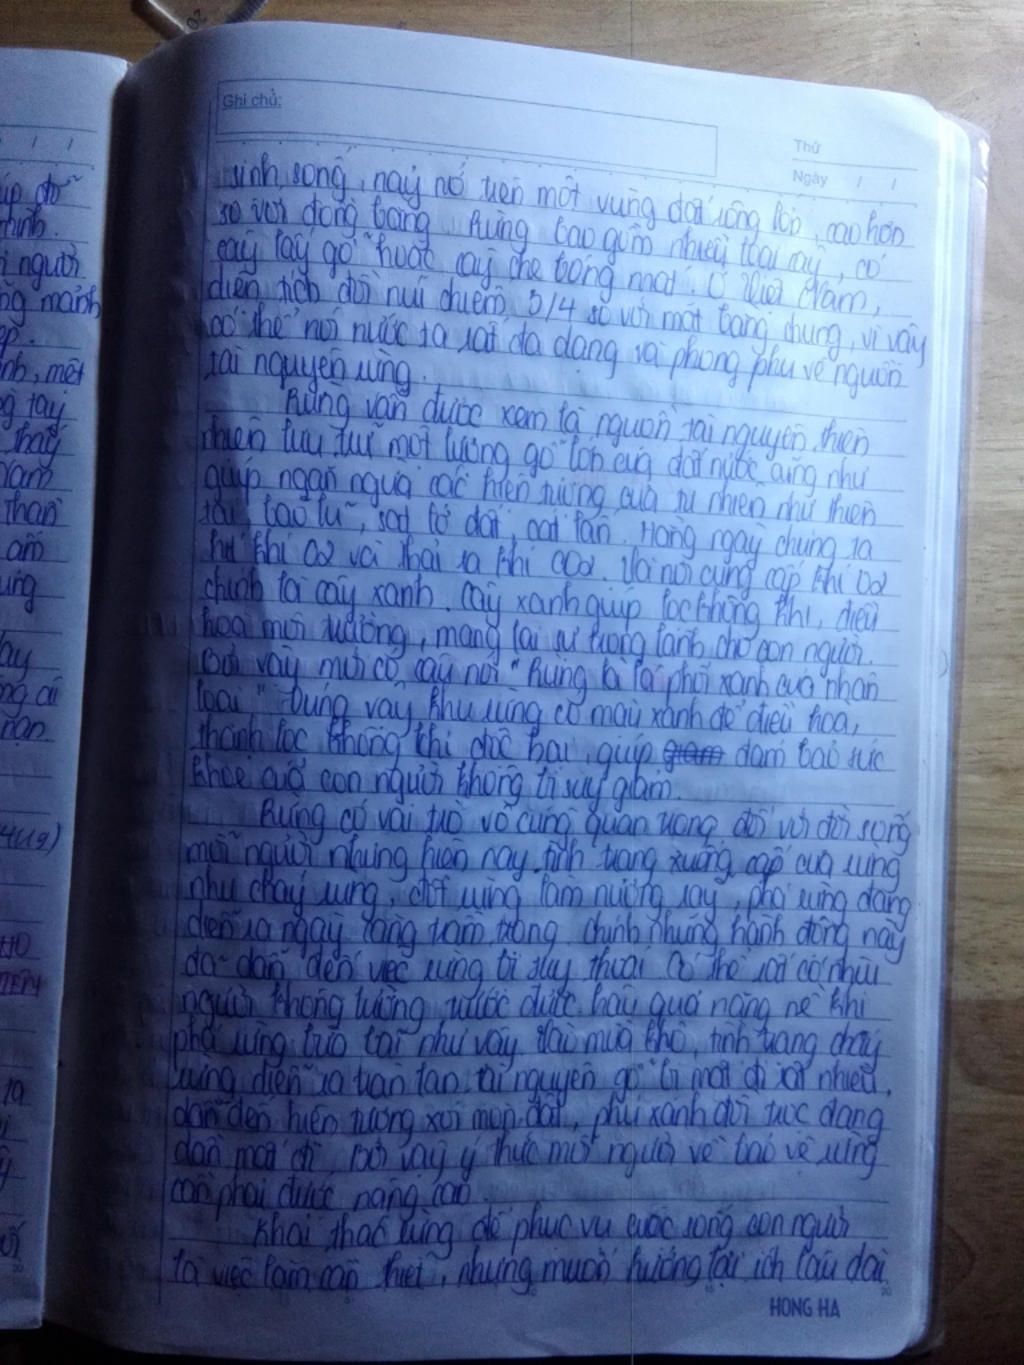 Ghi chú:
Thứ
Ngày / /
sinh sống, nảy nở trên một vùng đất rộng lớn, cao hơn
so với đồng bằng. Rừng bao gồm nhiều loại cây, có
cây lấy gỗ hoặc cây che bóng mát. Ở Việt Nam,
diện tích đồi núi chiếm 3/4 so với mặt bằng chung, vì vậy
có thể nói nước ta rất đa dạng và phong phú về nguồn
tài nguyên rừng.
Rừng vẫn được xem là nguồn tài nguyên thiên
nhiên lưu trữ một lượng gỗ lớn của đất nước cũng như
giúp ngăn ngừa các hiện tượng của tự nhiên như thiên
tai bão lũ, sạt lở đất, cát lấn. Hàng ngày chúng ta
hít khí O2 và thải ra khí CO2. Và nơi cung cấp khí O2
chính là cây xanh. Cây xanh giúp lọc không khí, điều
hoà môi trường, mang lại sự trong lành cho con người.
Bởi vậy mới có câu nói "Rừng là lá phổi xanh của nhân
loại". Đúng vậy, khu rừng có màu xanh để điều hoà,
thanh lọc không khí độc hại, giúp đảm bảo sức
khoẻ của con người không bị suy giảm.
Rừng có vai trò vô cùng quan trọng đối với đời sống
mỗi người nhưng hiện nay tình trạng xuống cấp của rừng
như cháy rừng, đốt rừng làm nương rẫy, phá rừng đang
diễn ra ngày càng trầm trọng. Chính những hành động này
đã dẫn đến việc rừng bị suy thoái. Có thể sẽ có nhiều
người không lường trước được hậu quả nặng nề khi
phá rừng bừa bãi như vậy. Vào mùa khô, tình trạng cháy
rừng diễn ra tràn lan. Tài nguyên gỗ bị mất đi rất nhiều,
dẫn đến hiện tượng xói mòn đất, phủ xanh đồi trọc đang
dần mất đi. Bởi vậy ý thức mỗi người về bảo vệ rừng
cần phải được nâng cao.
Khai thác rừng để phục vụ cuộc sống con người
là việc làm cần thiết, nhưng muốn hưởng lợi ích lâu dài
HONG HA